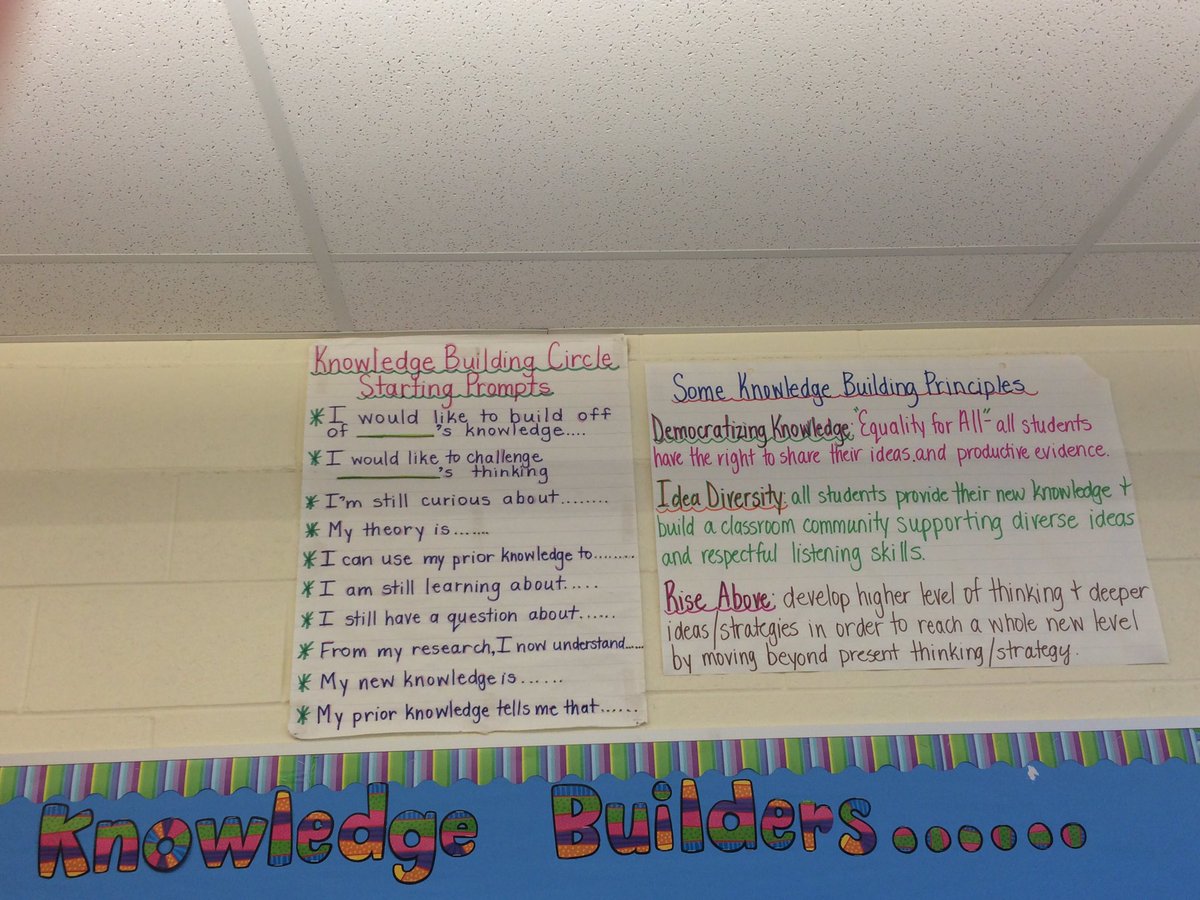 Knowledge Building Circle
Starting Prompts
* I would like to build off
of ________'s knowledge....
* I would like to challenge
________'s thinking
* I'm still curious about........
* My theory is.......
* I can use my prior knowledge to.........
* I am still learning about.....
* I still have a question about......
* From my research, I now understand......
* My new knowledge is......
* My prior knowledge tells me that......
Some Knowledge Building Principles
Democratizing Knowledge: "Equality for All" all students
have the right to share their ideas.and productive evidence.
Idea Diversity: all students provide their new knowledge +
build a classroom community supporting diverse ideas
and respectful listening skills.
Rise Above: develop higher level of thinking + deeper
ideas/strategies in order to reach a whole new level
by moving beyond present thinking/strategy.
Knowledge Builders......